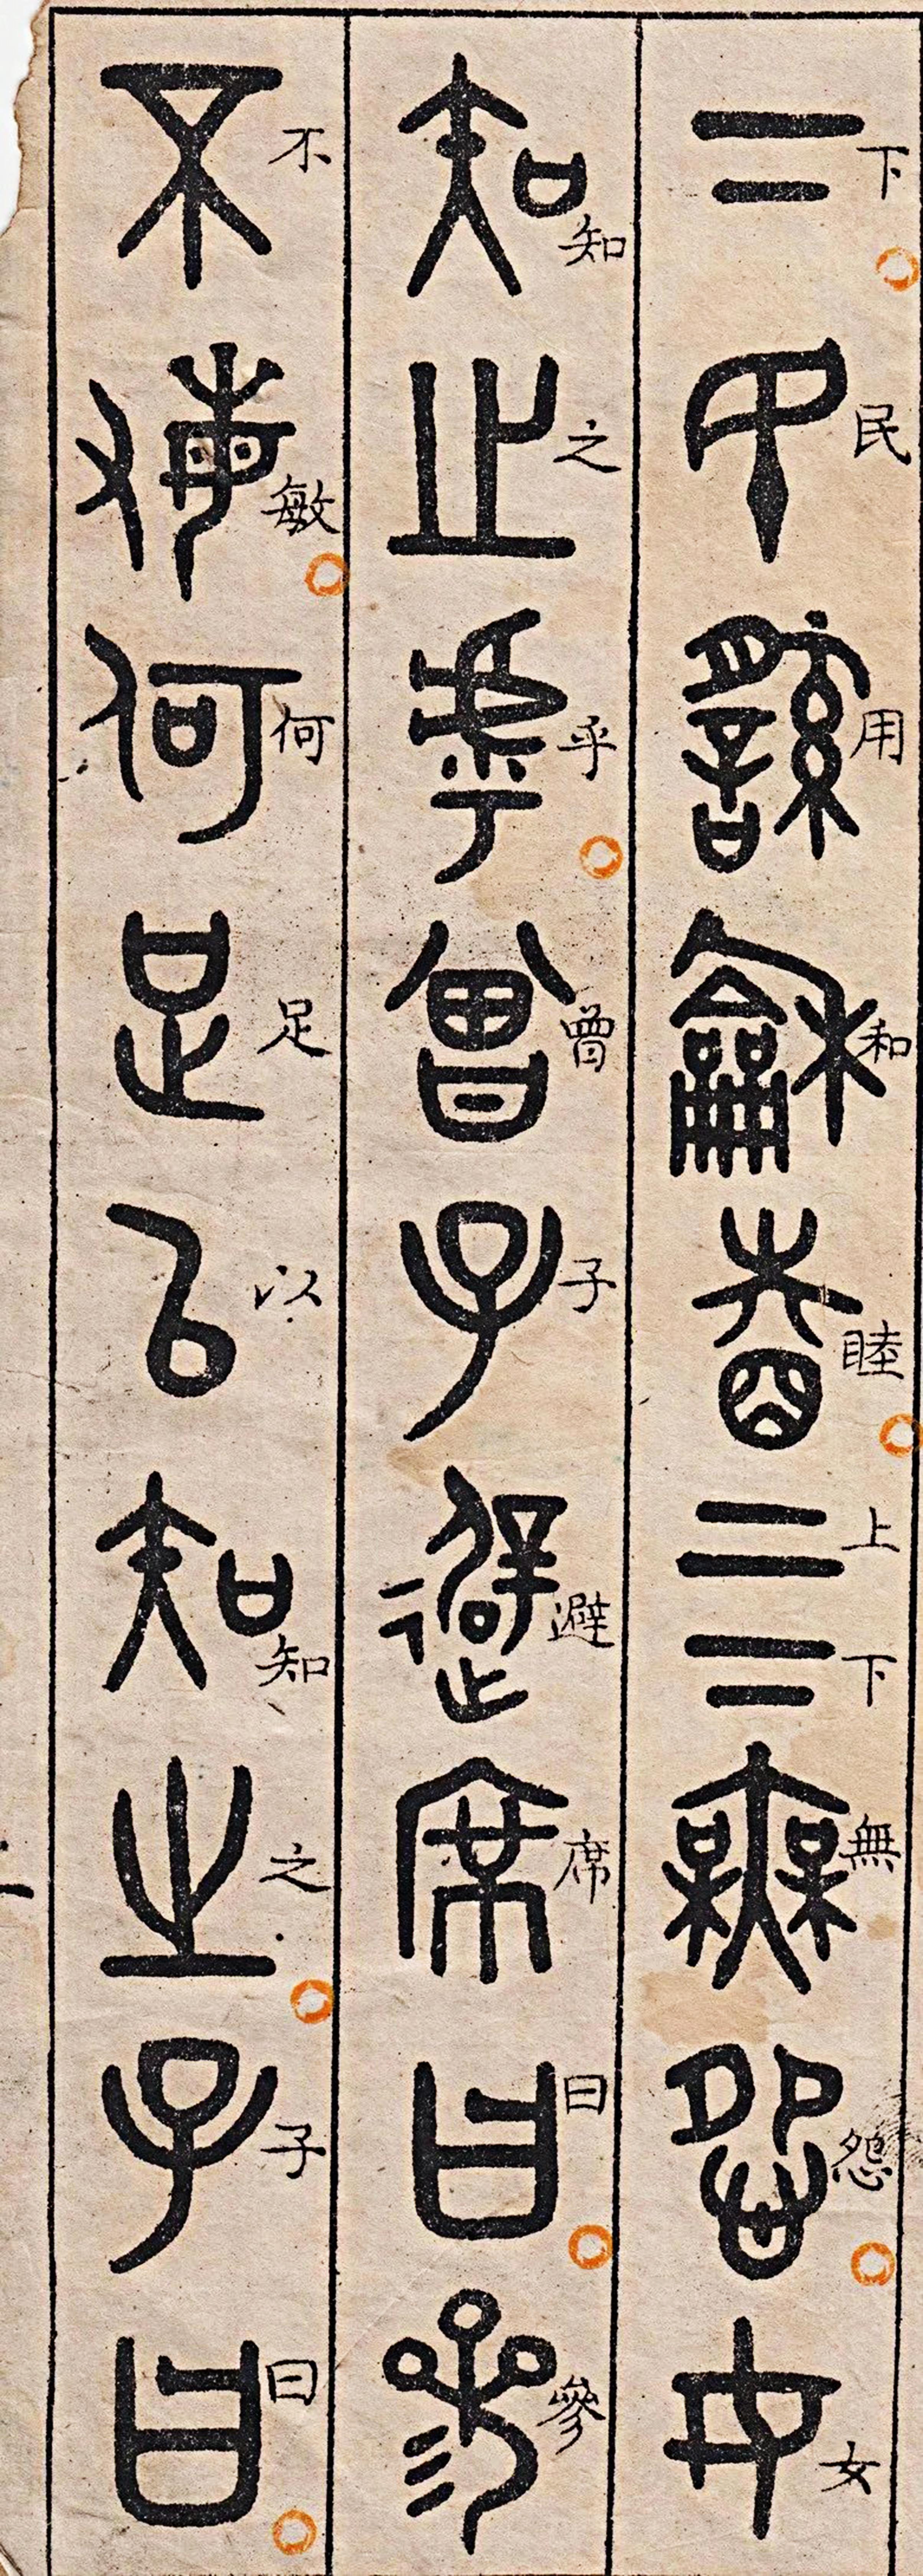 下民用和睦上下無怨女
知之乎曾子避席曰參
不敏何足以知之子曰